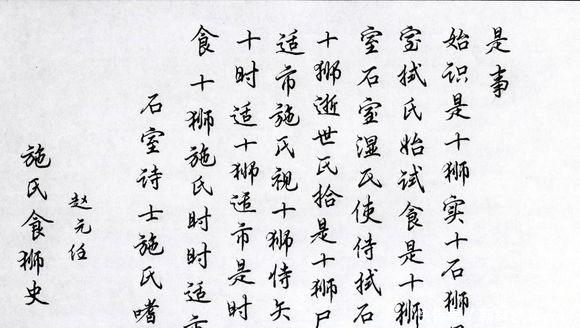 施氏食狮史
赵元任
石室诗士施氏嗜
食十狮施氏时时适
十时适十狮适市是时
适市施氏视十狮恃矢
十狮逝世氏拾是十狮尸
室石室湿氏使侍拭石
室拭氏始试食是十狮
始识是十狮实十石狮
是事